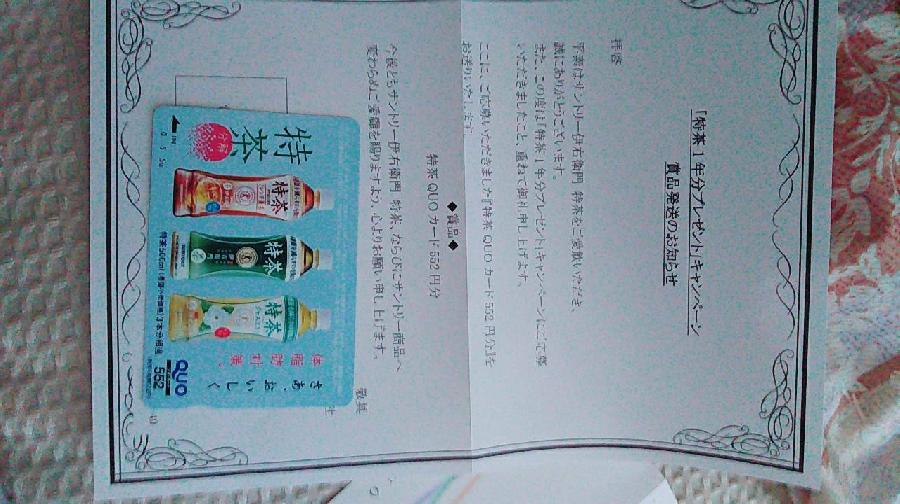 「特茶1年分プレゼント」キャンペーン
賞品発送のお知らせ
拝啓
平素はサントリー伊右衛門 特茶をご愛飲いただき、
誠にありがとうございます。
また、この度は「特茶1年分プレゼント」キャンペーンにご応募
いただきましたこと、重ねて御礼申し上げます。
ここに、ご応募いただきました『特茶 QUO カード 552 円分』を
お送りいたします
◆賞品◆
特茶 QUO カード 552 円分
今後ともサントリー伊右衛門 特茶、ならびにサントリー商品へ
変わらぬご愛顧を賜りますよう、心よりお願い申し上げます。
敬具
IN
0 5 50
特茶
特茶
特茶
特茶
伊右衛門
特茶500ml
3本分相当
体脂肪対策、
さあ、おいしく
QUO
552